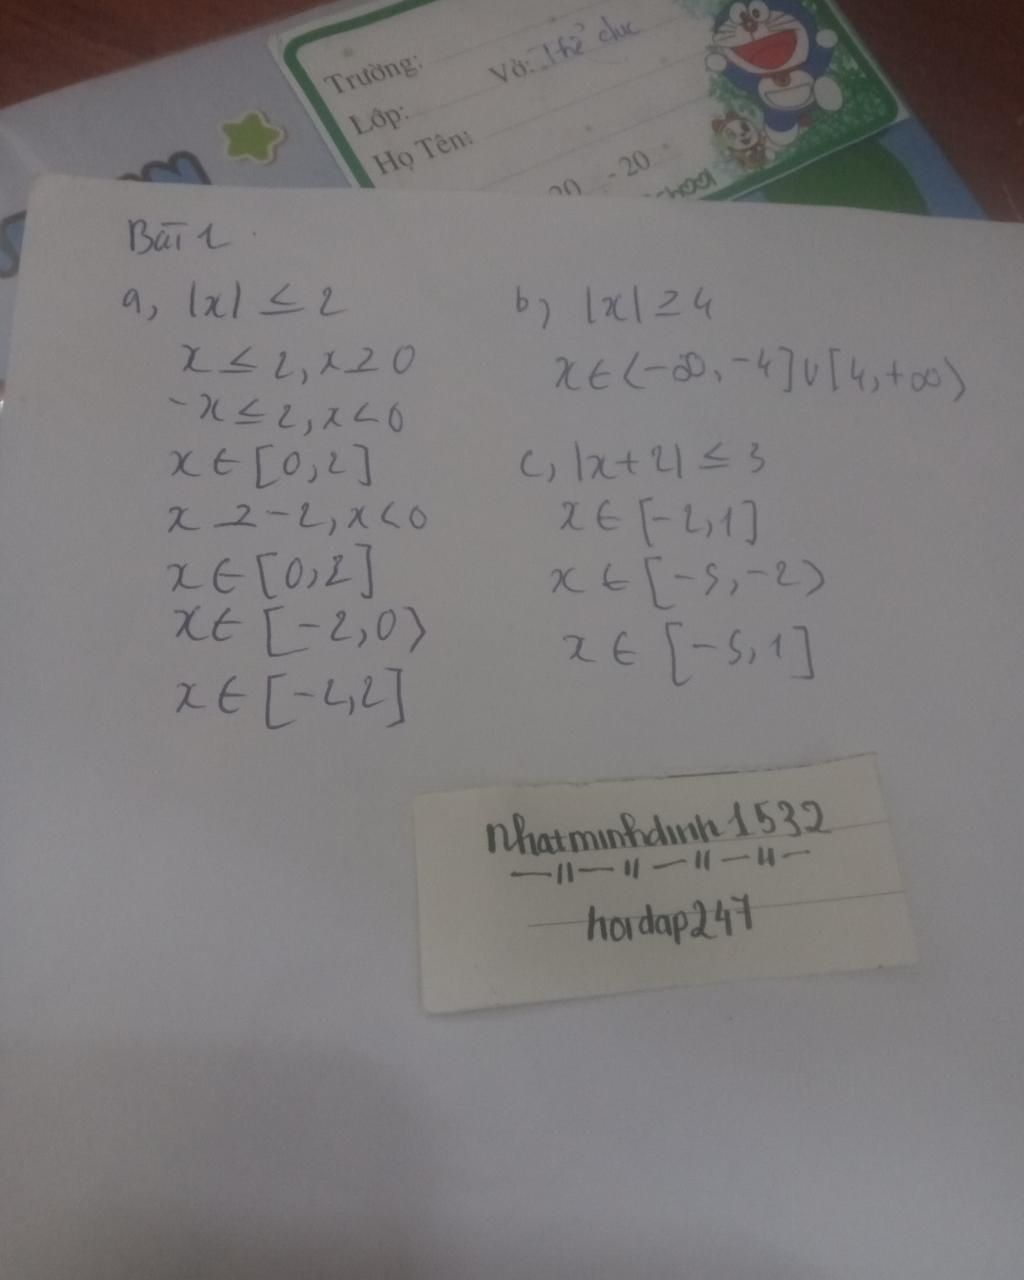 Trường:
Vở: Thể dục
Lớp:
Họ Tên:
20 - 20
Bài 1
a, |x| ≤ 2
x ≤ 2, x ≥ 0
-x ≤ 2, x < 0
x ∈ [0,2]
x ≥ -2, x < 0
x ∈ [0,2]
x ∈ [-2,0)
x ∈ [-2,2]
b, |x| ≥ 4
x ∈ (-∞, -4] ∪ [4, +∞)
c, |x+2| ≤ 3
x ∈ [-2,1]
x ∈ [-5,-2)
x ∈ [-5,1]
nhatminhdinh1532
hoidap247